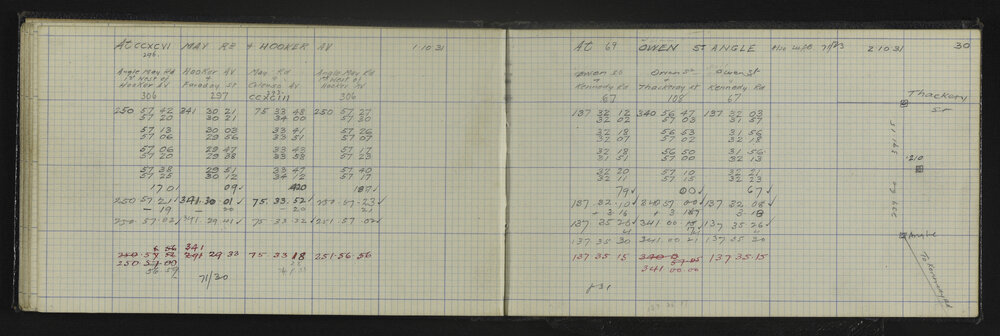 At CCXCVI MAY Rd + HOOKER AV 1 10 31
296
Angle May Rd Hooker AV May Rd Angle May Rd
1st West of + + 1st West of
Hooker AV Faraday St Colenso AV Hooker AV
293
306 297 CCXCIII 306
250 57 42 341 30 21 75 33 48 250 57 27
57 20 30 21 34 00 57 30
57 13 30 03 33 41 57 26
57 06 29 56 33 51 57 07
57 06 29 47 33 43 57 17
57 20 29 38 33 58 57 23
57 38 29 51 33 47 57 40
57 25 30 12 34 12 57 17
170 09 420 187
250 57 21 341 30 01 75 33 52 250 57 23
- 19 - 20 - 20 21
250 57 02 341 29 41 75 33 32 251 57 02
6 56 341
250 57 52 291 29 33 75 33 18 251 56 56
250 57 00
56 57
71/30
At 69 OWEN St ANGLE 71/23 2 10 31 30
Owen St Owen St Owen St
+ + +
Kennedy Rd Thackeray St Kennedy Rd
67 108 67
137 32 12 340 56 47 137 32 03
32 02 57 03 31 57
32 18 56 53 31 56
32 07 57 02 32 18
32 18 56 50 31 56
31 51 57 00 32 13
32 20 57 10 32 21
32 11 57 15 32 23
79 00 67
137 32 10 340 57 00 137 32 08
+ 3 16 + 3 17 3 18
137 35 26 341 00 15 137 35 26
137 35 30 341 00 21 137 35 20
137 35 15 340 0 137 35 15
341 00 00
Thackery
St
341.15
210
Angle
To Kennedy Rd